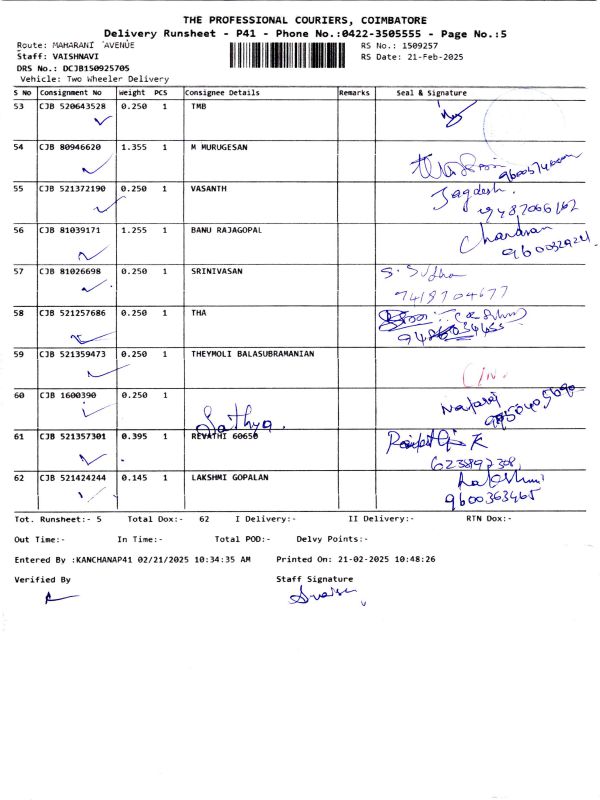 THE PROFESSIONAL COURIERS, COIMBATORE
Delivery Runsheet - P41 - Phone No.:0422-3505555 - Page No.:5
Route: MAHARANI AVENUE RS No.: 1509257
Staff: VAISHNAVI RS Date: 21-Feb-2025
DRS No.: DCJB150925705
Vehicle: Two Wheeler Delivery
S No Consignment No Weight PCS Consignee Details Remarks Seal & Signature
53 CJB 520643528 0.250 1 TMB
54 CJB 80946620 1.355 1 M MURUGESAN
55 CJB 521372190 0.250 1 VASANTH Jagdesh.
9487066162
56 CJB 81039171 1.255 1 BANU RAJAGOPAL Chandran
57 CJB 81026698 0.250 1 SRINIVASAN S. Sudha
7419704677
58 CJB 521257686 0.250 1 THA
59 CJB 521359473 0.250 1 THEYMOLI BALASUBRAMANIAN
C/N.
60 CJB 1600390 0.250 1 Nataraj
Sathya.
61 CJB 521357301 0.395 1 REVATHI 60650
62 CJB 521424244 0.145 1 LAKSHMI GOPALAN Lakshmi
9600363465
Tot. Runsheet:- 5 Total Dox:- 62 I Delivery:- II Delivery:- RTN Dox:-
Out Time:- In Time:- Total POD:- Delvy Points:-
Entered By :KANCHANAP41 02/21/2025 10:34:35 AM Printed On: 21-02-2025 10:48:26
Verified By Staff Signature